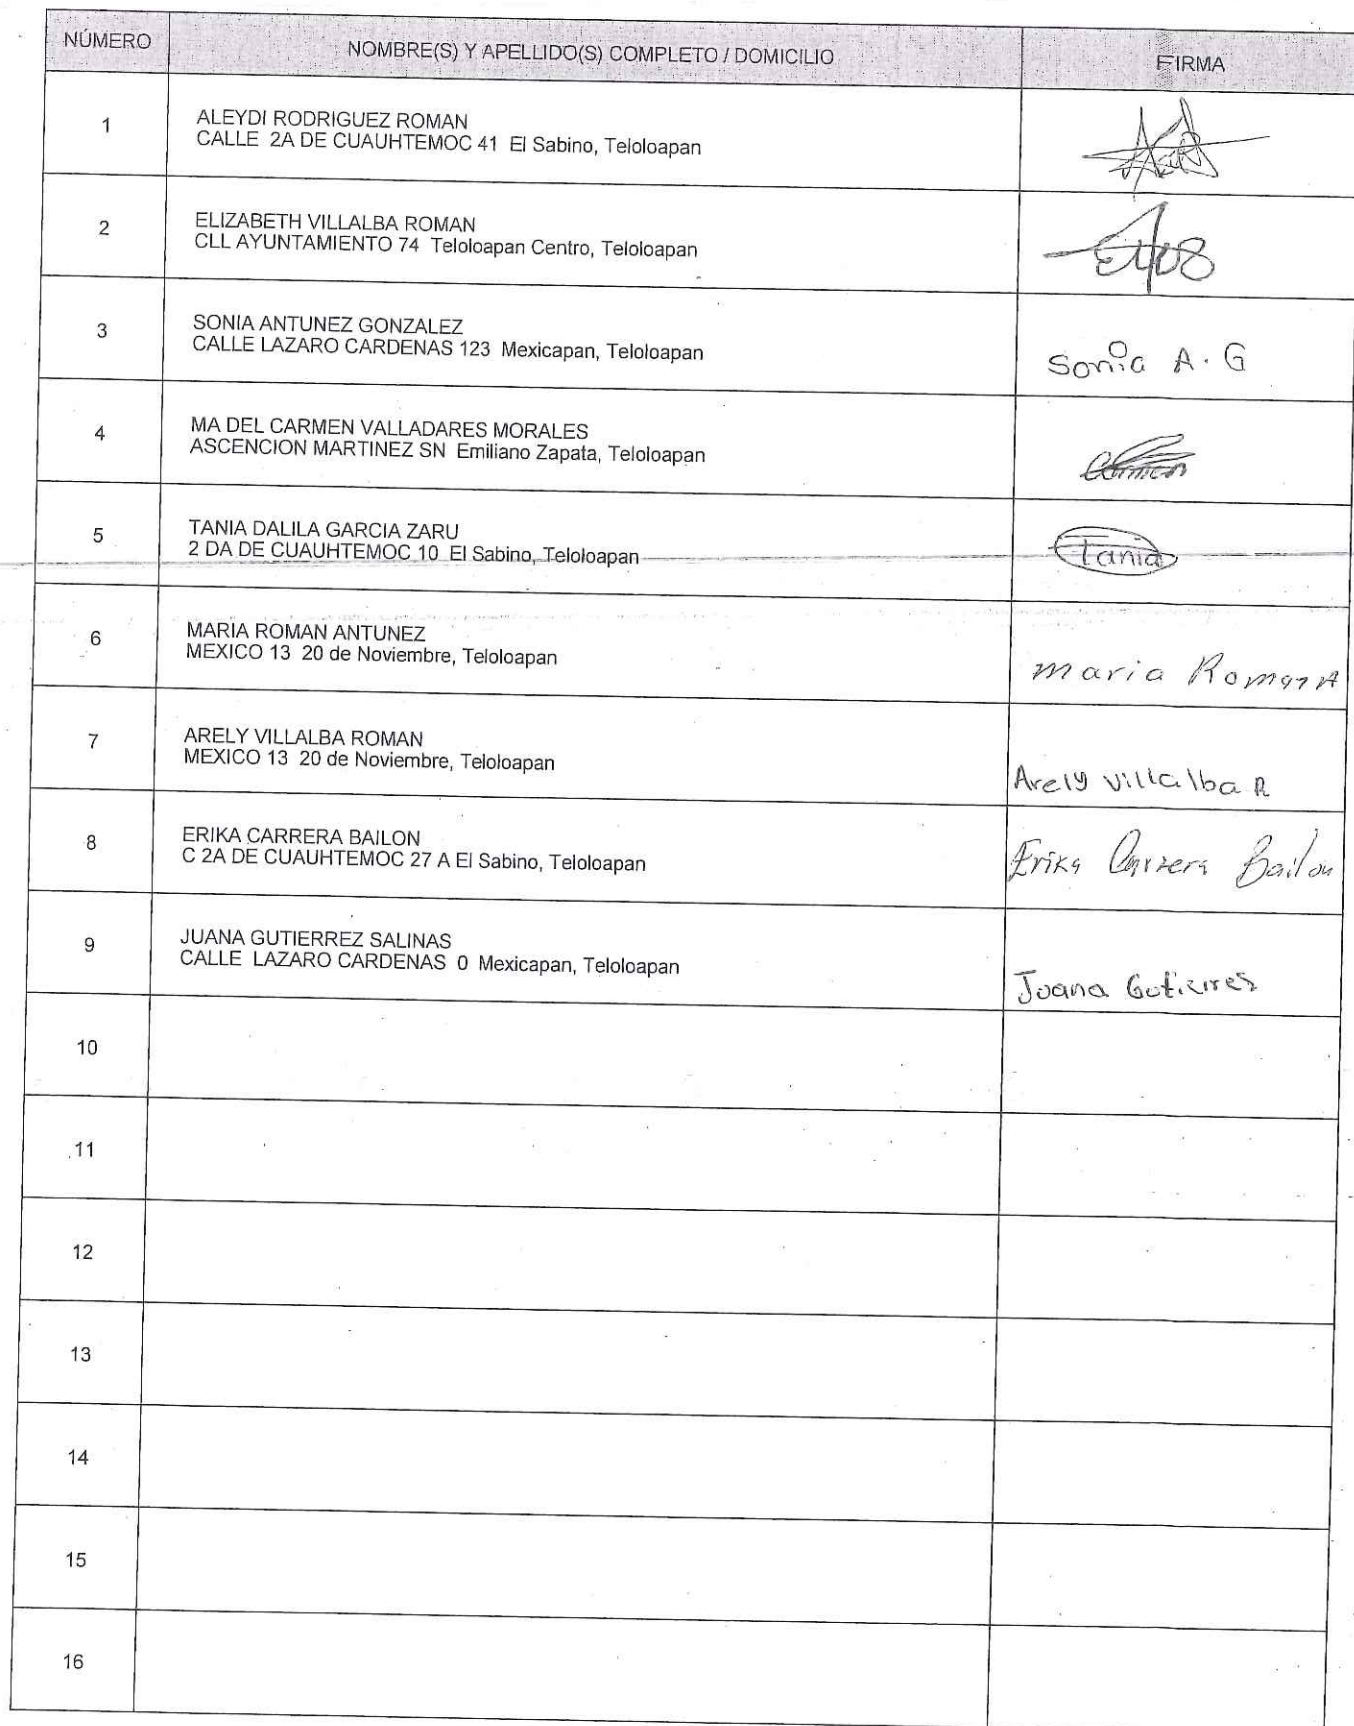 NÚMERO NOMBRE(S) Y APELLIDO(S) COMPLETO / DOMICILIO FIRMA
1 ALEYDI RODRIGUEZ ROMAN
CALLE 2A DE CUAUHTEMOC 41 El Sabino, Teloloapan
2 ELIZABETH VILLALBA ROMAN
CLL AYUNTAMIENTO 74 Teloloapan Centro, Teloloapan
3 SONIA ANTUNEZ GONZALEZ
CALLE LAZARO CARDENAS 123 Mexicapan, Teloloapan
Sonia A. G
4 MA DEL CARMEN VALLADARES MORALES
ASCENCION MARTINEZ SN Emiliano Zapata, Teloloapan
Carmen
5 TANIA DALILA GARCIA ZARU
2 DA DE CUAUHTEMOC 10 El Sabino, Teloloapan
Tania
6 MARIA ROMAN ANTUNEZ
MEXICO 13 20 de Noviembre, Teloloapan
maria Roman A
7 ARELY VILLALBA ROMAN
MEXICO 13 20 de Noviembre, Teloloapan
Arely Villalba R
8 ERIKA CARRERA BAILON
C 2A DE CUAUHTEMOC 27 A El Sabino, Teloloapan
Erika Carrera Bailon
9 JUANA GUTIERREZ SALINAS
CALLE LAZARO CARDENAS 0 Mexicapan, Teloloapan
Juana Gutierres
10
11
12
13
14
15
16